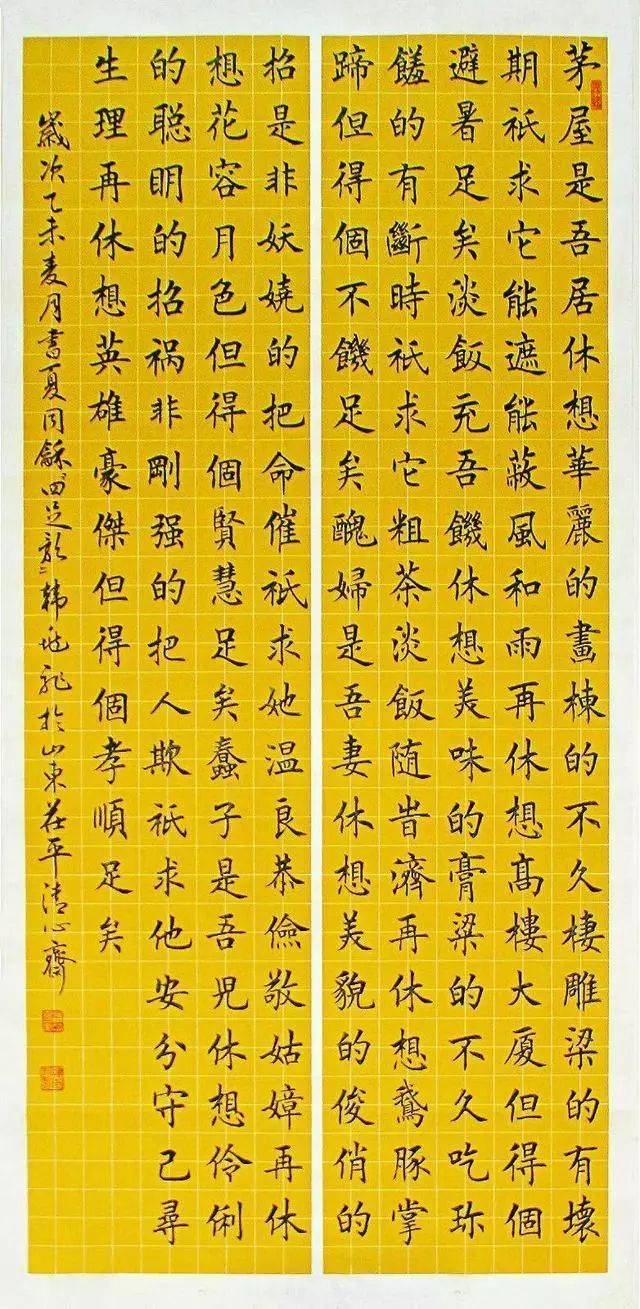 茅屋是吾居休想華麗的畫棟的不久棲雕梁的有壞
期祇求它能遮能蔽風和雨再休想高樓大厦但得個
避暑足矣淡飯充吾饑休想美味的膏粱的不久吃珎
饈的有斷時祇求它粗茶淡飯隨旹濟再休想鵞豚掌
蹄但得個不饑足矣醜婦是吾妻休想美貌的俊俏的
招是非妖嬈的把命催祇求她温良恭儉敬姑嫜再休
想花容月色但得個賢慧足矣蠢子是吾児休想伶俐
的聪明的招祸非剛强的把人欺祇求他安分守己尋
生理再休想英雄豪傑但得個孝順足矣
歲次乙未麦月書夏同龢四足歌韩於山東茌平清心齋